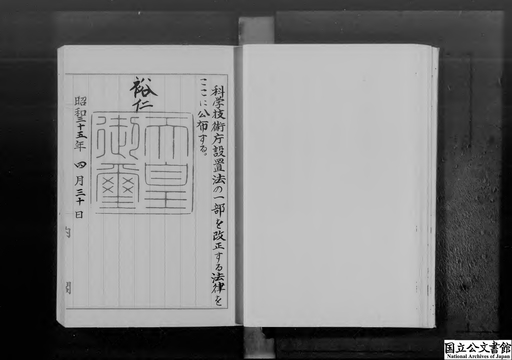 科学技術庁設置法の一部を改正する法律を
ここに公布する。
裕仁
天皇
御璽
昭和三十五年 四月三十日
内閣
国立公文書館
National Archives of Japan